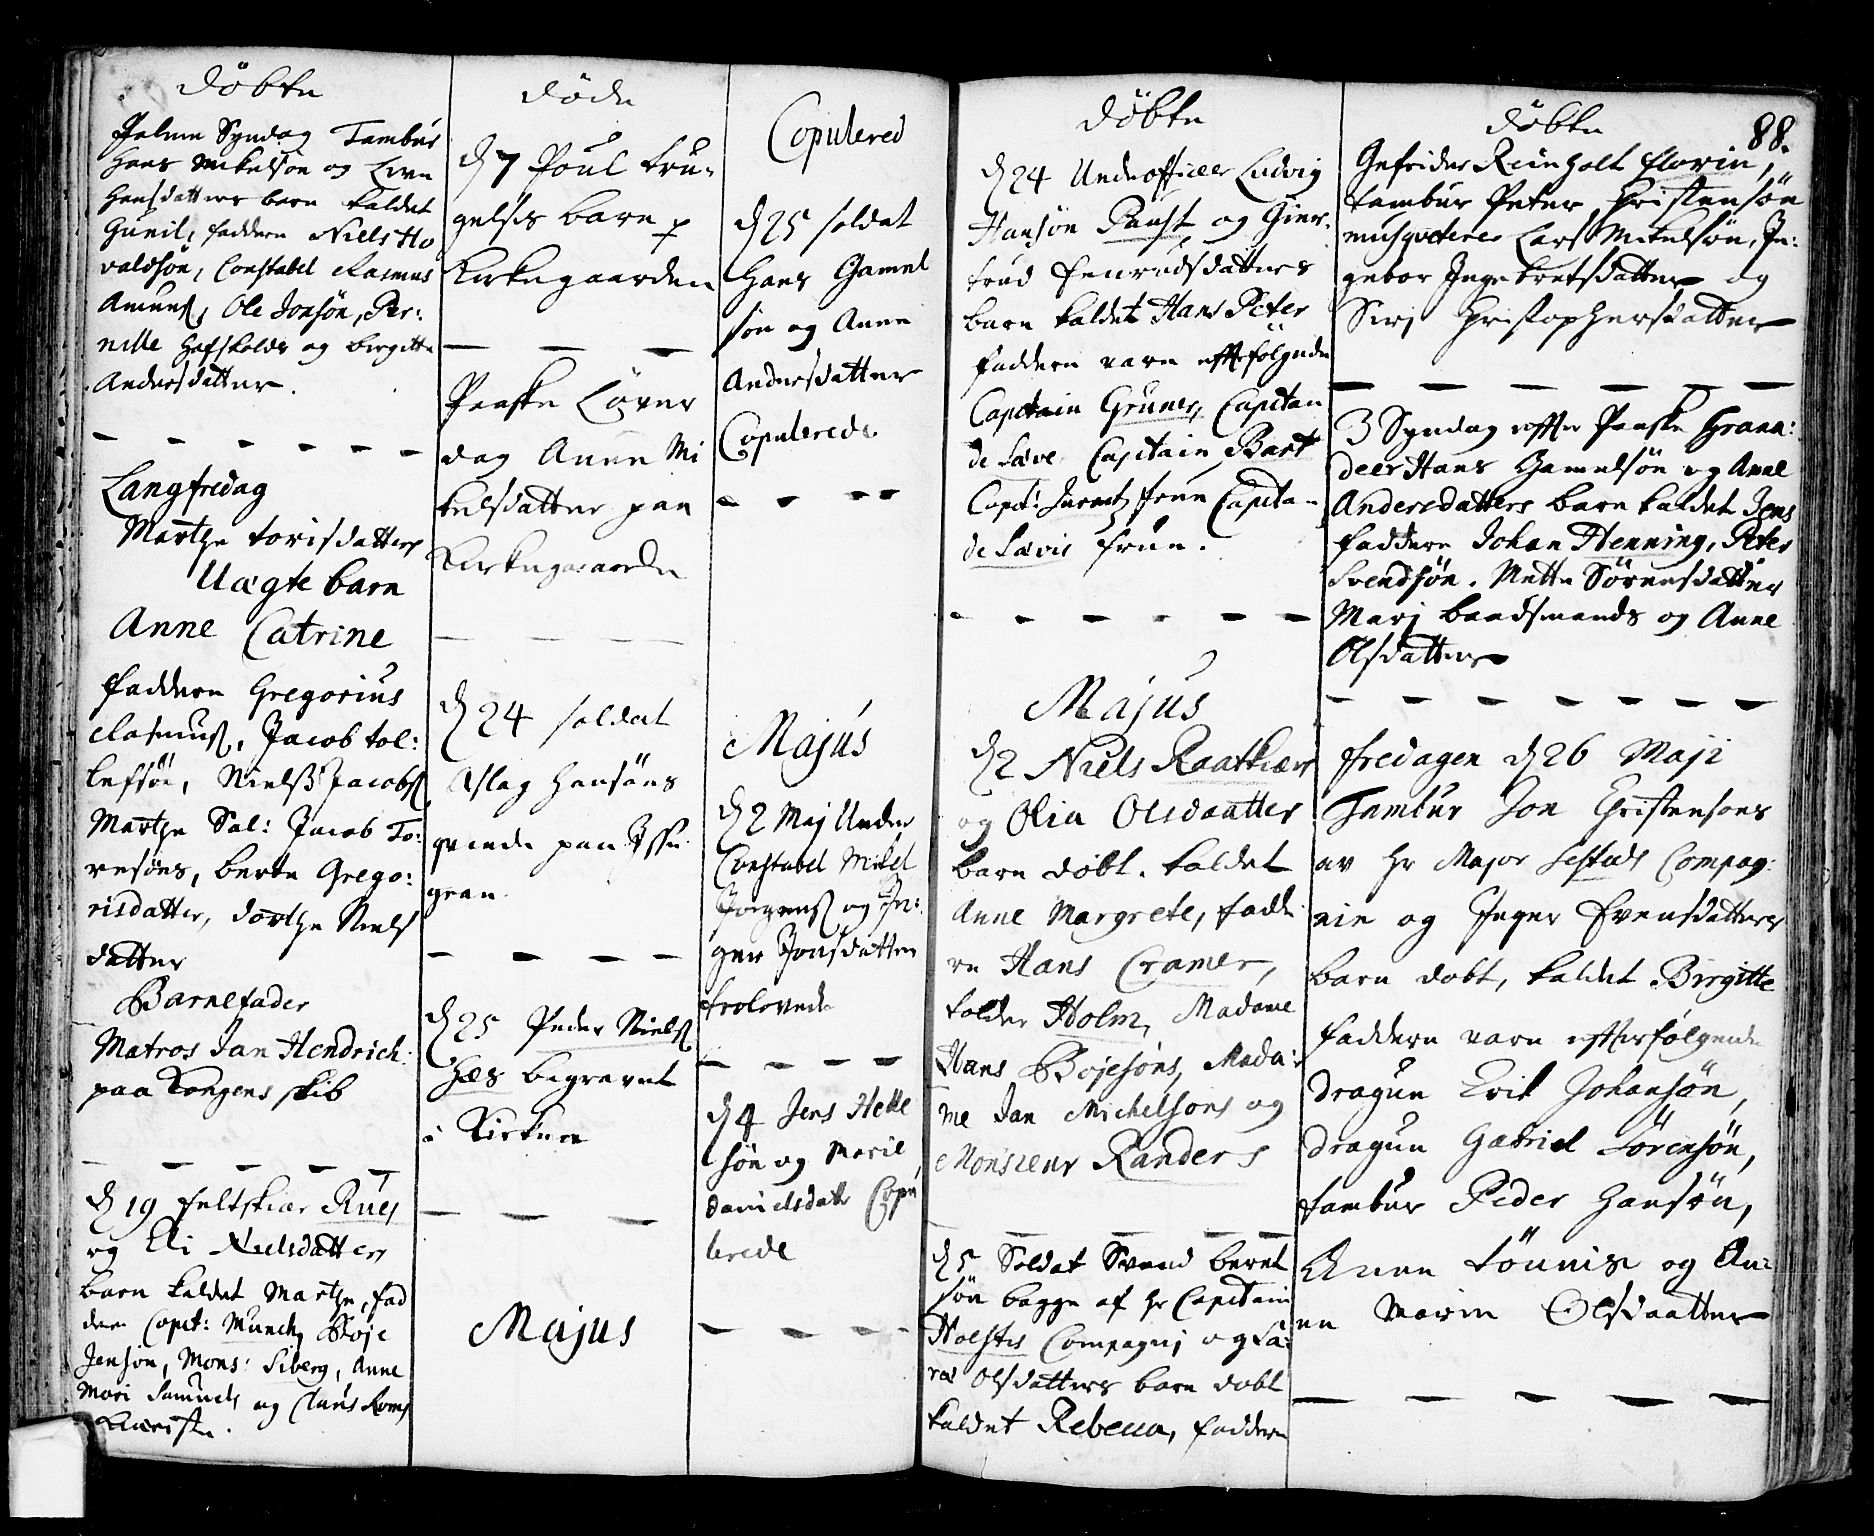 Döbte
Palme Syndag Tambur
Hans Mikelsön og Live
Hansdatters barn kaldet
Gunil, faddere Niels Ho
valdsön, Constabel Rasmus
Amunds, Ole Jonsön, Per:
nille Hafskolds og birgitte
Andersdatter.
Langfredag
Marthe torisdatters
Uægte barn
Anne Catrine
faddere Gregorius
Rasmus, Jacob tol:
lefsön, Niels Jacobs
Marthe Sal: Jacob To:
resöns, berte Grego:
risdatter, dorthe Niels
datter
Barnefader
Matros Jan Hendrich:
paa Kongens skib
d 19 feltskiær Rues
og Eli Nielsdatters
barn kaldet Marthe, fad
dere Capit: Munch, Boje
Jensön, Mons: Siberg, Anne
Mari Samuels og Claus Roms
Kæriste.
döde
d 7 Poul tru:
gelsös barn p
Kirkegaarden
Paaske Löver
dag Anne Mi
kelsdatter paa
Kirkegaarde
d 24 soldat
Aslag Hansöns
qvinde paa
d 25 Peder Niels
Hæs begravet
i Kirken
Majus
Copulered
d 25 soldat
Hans Gamel
sön og Anne
Andersdatter
Copulerede
Majus
d 2 Maj Under
Constabel Mikel
Jörgens og In:
ger Jonsdatter
trolovede
d 4 Jens Helle
sön og Marie
Danielsdatt Copu
lerede
döbte
d 24 Underofficer Ludvig
Hansön Paust og Gier
trud Enersdsdatters
barn kaldet Hans Peter
faddere vare effterfölgende
Capitain Gruner, Capitan
de Sæve Capitain Bart
Capt: frue Capitan
de Sævis frue.
Majus
d 2 Niels Raatkiær
og Olia Olsdaatter
barn döbt. kaldet
Anne Margrete, fadde
re Hans Cramer,
tolder Holm, Madame
Hans Bojesöns, Mada:
me Jan Michelsons og
Monsieur Randers
d 5 Soldat Svend beret
sön begge af Hr Capitain
Holstes Compagnj og Sa:
ra Olsdatters barn döbt
kaldet Rebecca, faddere
döbte
88.
Gefreider Reinholt florin,
tambur Peter Christensön
musqveterer Lars Mikelsön, In:
gebor Ingebretsdatter og
Sirj Christophersdatter
3 Syndag effter Paaske Grana:
deer Hans Gamelsön og Anne
Andersdatters barn kaldet Jens
faddere Johan Henning, Peter
Svendsön. Mette Sörensdatter
Marj baadsmands og Anne
Olsdatter
fredagen d 26 Maji
Tambur Jon Christensons
av Hr Major Compag:
nie og Inger Evensdatters
barn dobt, kaldet Birgitte
faddere vare effterfölgende
dragun Erik Johansön,
dragun Gabriel Sörensön,
tambur Peder Hansön,
Anne tönnise og An:
ne Marie Olsdaatter